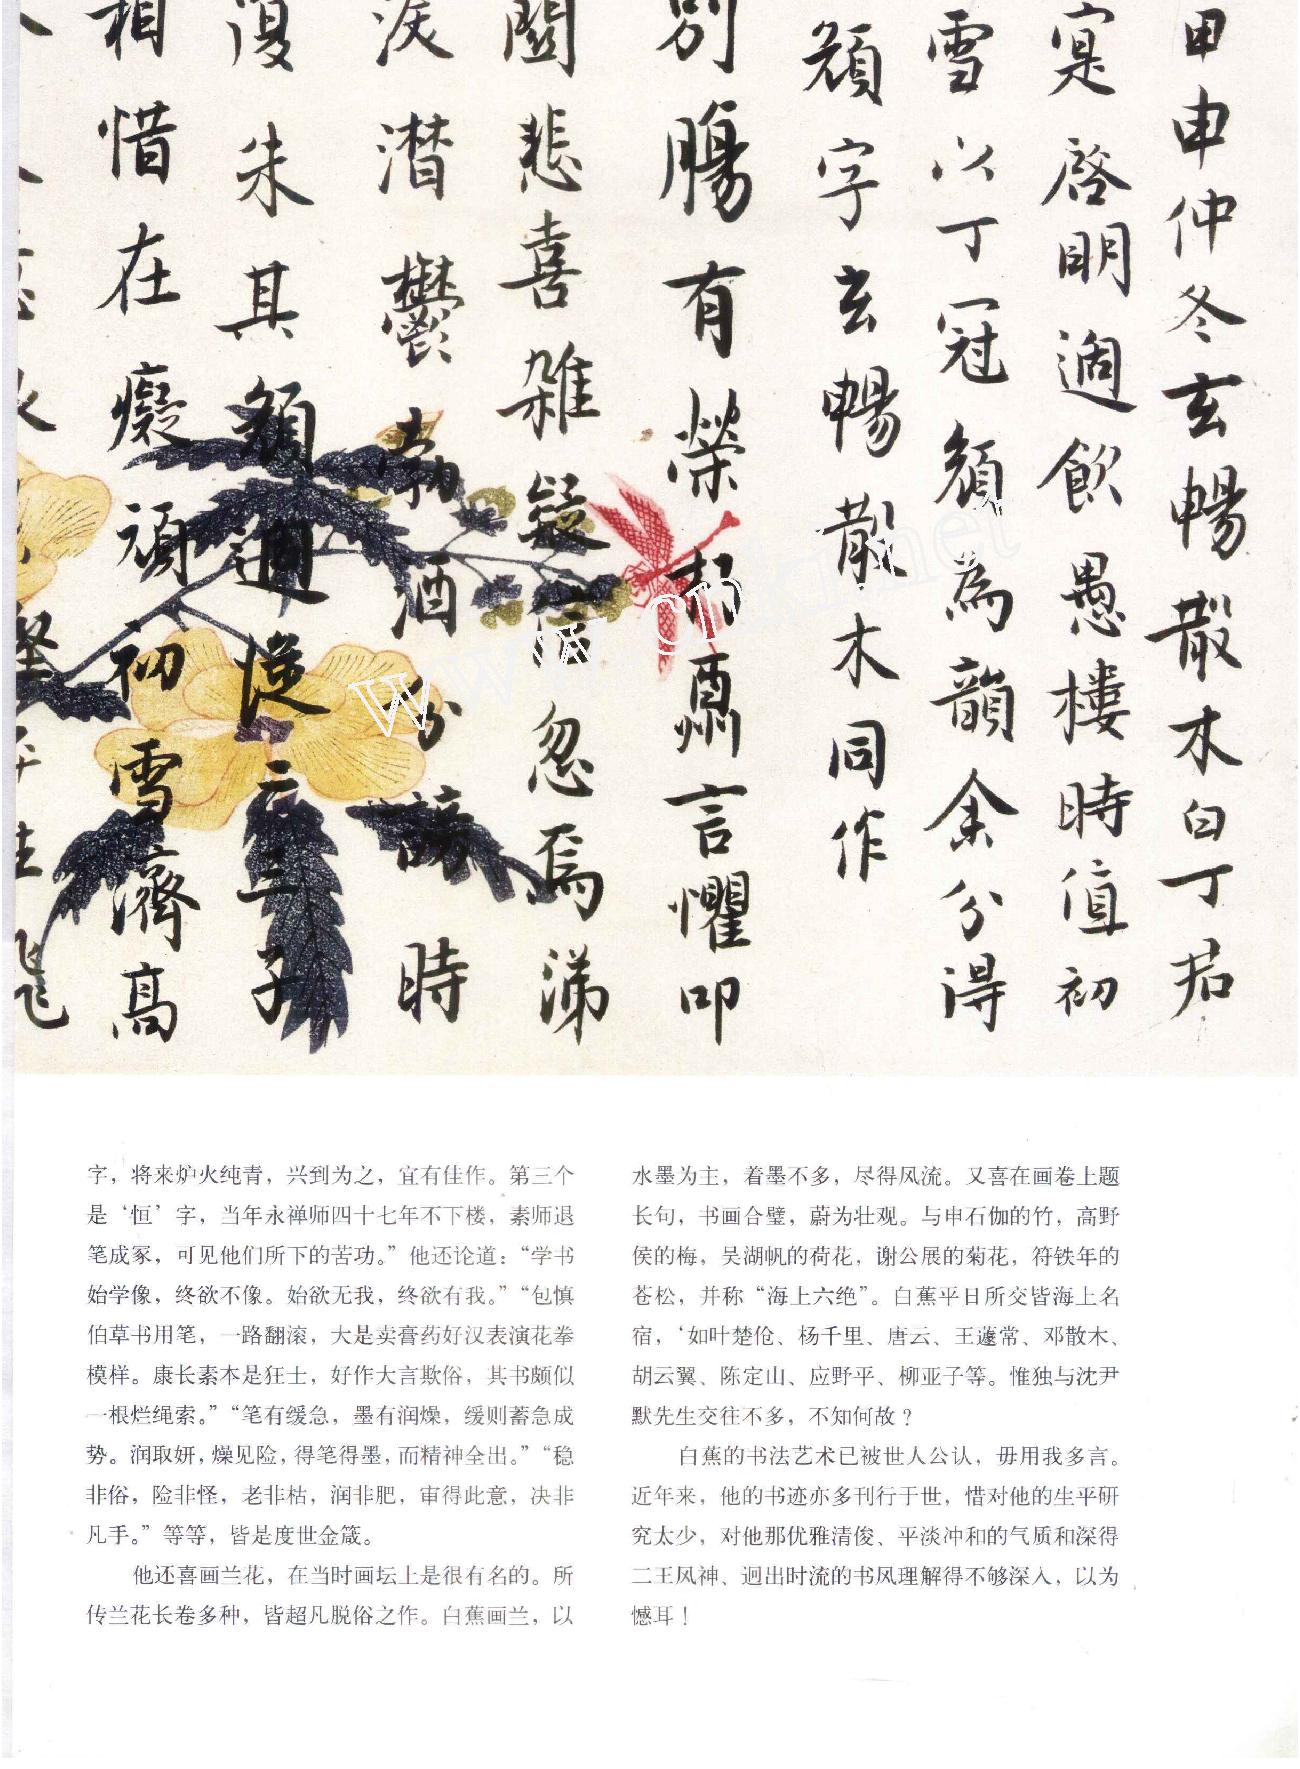 甲申仲冬玄暢散木白丁君
寔啓明過飲愚樓時值初
雪以丁冠頠為韻余分得
頠字玄暢散木同作
別腸有榮郝焉言懼叩
闋悲喜雜疑信忽焉涕
淚潛鬱勃酒分謗時
復朱其頠迴從二三子
相惜在癡頑初雪濟高
www.cnki.net
字，将来炉火纯青，兴到为之，宜有佳作。第三个
是‘恒’字，当年永禅师四十七年不下楼，素师退
笔成冢，可见他们所下的苦功。”他还论道：“学书
始学像，终欲不像。始欲无我，终欲有我。”“包慎
伯草书用笔，一路翻滚，大是卖膏药好汉表演花拳
模样。康长素本是狂士，好作大言欺俗，其书颇似
一根烂绳索。”“笔有缓急，墨有润燥，缓则蓄急成
势。润取妍，燥见险，得笔得墨，而精神全出。”“稳
非俗，险非怪，老非枯，润非肥，审得此意，决非
凡手。”等等，皆是度世金箴。
他还喜画兰花，在当时画坛上是很有名的。所
传兰花长卷多种，皆超凡脱俗之作。白蕉画兰，以
水墨为主，着墨不多，尽得风流。又喜在画卷上题
长句，书画合璧，蔚为壮观。与申石伽的竹，高野
侯的梅，吴湖帆的荷花，谢公展的菊花，符铁年的
苍松，并称“海上六绝”。白蕉平日所交皆海上名
宿，‘如叶楚伧、杨千里、唐云、王蘧常、邓散木、
胡云翼、陈定山、应野平、柳亚子等。惟独与沈尹
默先生交往不多，不知何故？
白蕉的书法艺术已被世人公认，毋用我多言。
近年来，他的书迹亦多刊行于世，惜对他的生平研
究太少，对他那优雅清俊、平淡冲和的气质和深得
二王风神、迥出时流的书风理解得不够深入，以为
憾耳！